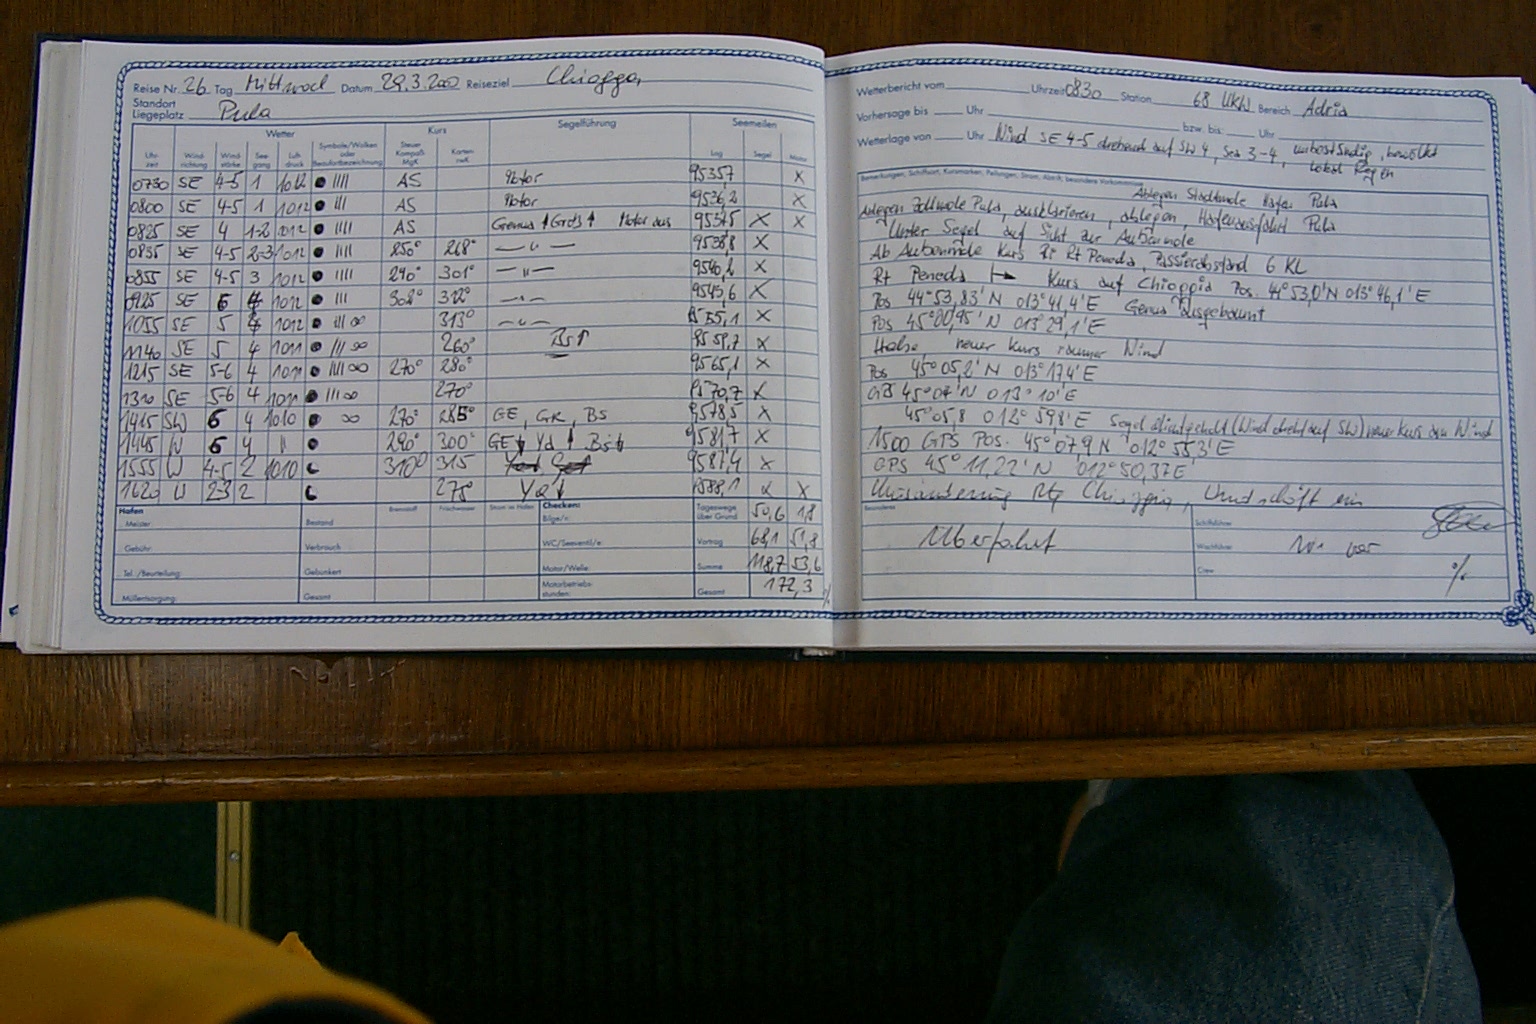 Reise Nr. 26 Tag Mittwoch Datum 29.3.2000 Reiseziel Chioggia
Standort
Liegeplatz Pula
Wetter Kurs Segelführung Seemeilen
Uhrzeit Windrichtung Windstärke Seegang Luftdruck Symbole/Wolken oder Beaufortbezeichnung Steuer Kompaß MgK Karten rwK Log Segel Motor
0730 SE 4-5 1 1012 ● |||| AS Motor 9535,7 X
0800 SE 4-5 1 1012 ● |||| AS Motor 9536,2 X
0825 SE 4 1-2 1012 ● |||| AS Genua ↑ Groß ↑ Motor aus 9537,5 X X
0835 SE 4-5 2-3 1012 ● |||| 250° 268° — " — 9538,8 X
0855 SE 4-5 3 1012 ● |||| 290° 301° — " — 9540,2 X
0925 SE 6 4 1012 ● ||| 308° 312° — " — 9543,6 X
1055 SE 5 4 1012 ● ||| ∞ 313° — " — 9555,1 X
1140 SE 5 4 1011 ● ||| ∞ 260° Bs↑ 9559,7 X
1215 SE 5-6 4 1011 ● |||| ∞ 270° 280° 9565,1 X
1310 SE 5-6 4 1011 ● ||| ∞ 270° 9570,7 X
1415 SW 6 4 1010 ● ∞ 270° 285° GE, GR, BS 9578,5 X
1445 W 6 4 " ● 290° 300° GE↓ Yd ↑ Bs↓ 9581,7 X
1555 W 4-5 2 1010 310° 315 9587,4 X
1620 W 2-3 2 275° Yd↓ 9588,1 X X
Hafen Brennstoff Frischwasser Strom im Hafen Checken: Tageswege über Grund 50,6 1,8
Meister: Bestand Bilge/r:
Gebühr: Verbrauch WC/Seeventil/e: Vortrag 68,1 51,8
Tel./Beurteilung: Gebunkert Motor/Welle: Summe 118,7 53,6
Müllentsorgung: Gesamt Motorbetriebsstunden: Gesamt 172,3
Wetterbericht vom Uhrzeit 0830 Station 68 UKW Bereich Adria
Vorhersage bis Uhr bzw. bis: Uhr
Wetterlage von Uhr Wind SE 4-5 drehend auf SW 4, See 3-4, unbeständig, bewölkt
lokal Regen
Bemerkungen, Schiffsort, Kursmarken, Peilungen, Strom, Abtrift, besondere Vorkommnisse
Ablegen Stadtmole Hafen Pula
Anlegen Zollmole Pula, ausklarieren, ablegen, Hafenausfahrt Pula
Unter Segel auf Sicht zur Außenmole
Ab Außenmole Kurs Rt Peneda, Passierabstand 6 KL
Rt Peneda Kurs auf Chioggia Pos. 44°53,0'N 013°46,1'E
Pos 44°53,83'N 013°41,4'E Genua ausgebaumt
Pos 45°00,95'N 013°29,1'E
Halse neuer Kurs raumer Wind
Pos 45°05,2'N 013°17,4'E
GPS 45°07'N 013°10'E
45°05,8 012°59,8'E Segel dichtgeholt (Wind dreht auf SW) neuer Kurs am Wind
1500 GPS POS. 45°07,9 N 012°55,3'E
GPS 45°11,22'N 012°50,37'E
Kursänderung Rtg Chioggia, Wind schläft ein
Besonderes Schiffsführer
Überfahrt Wachführer
Crew